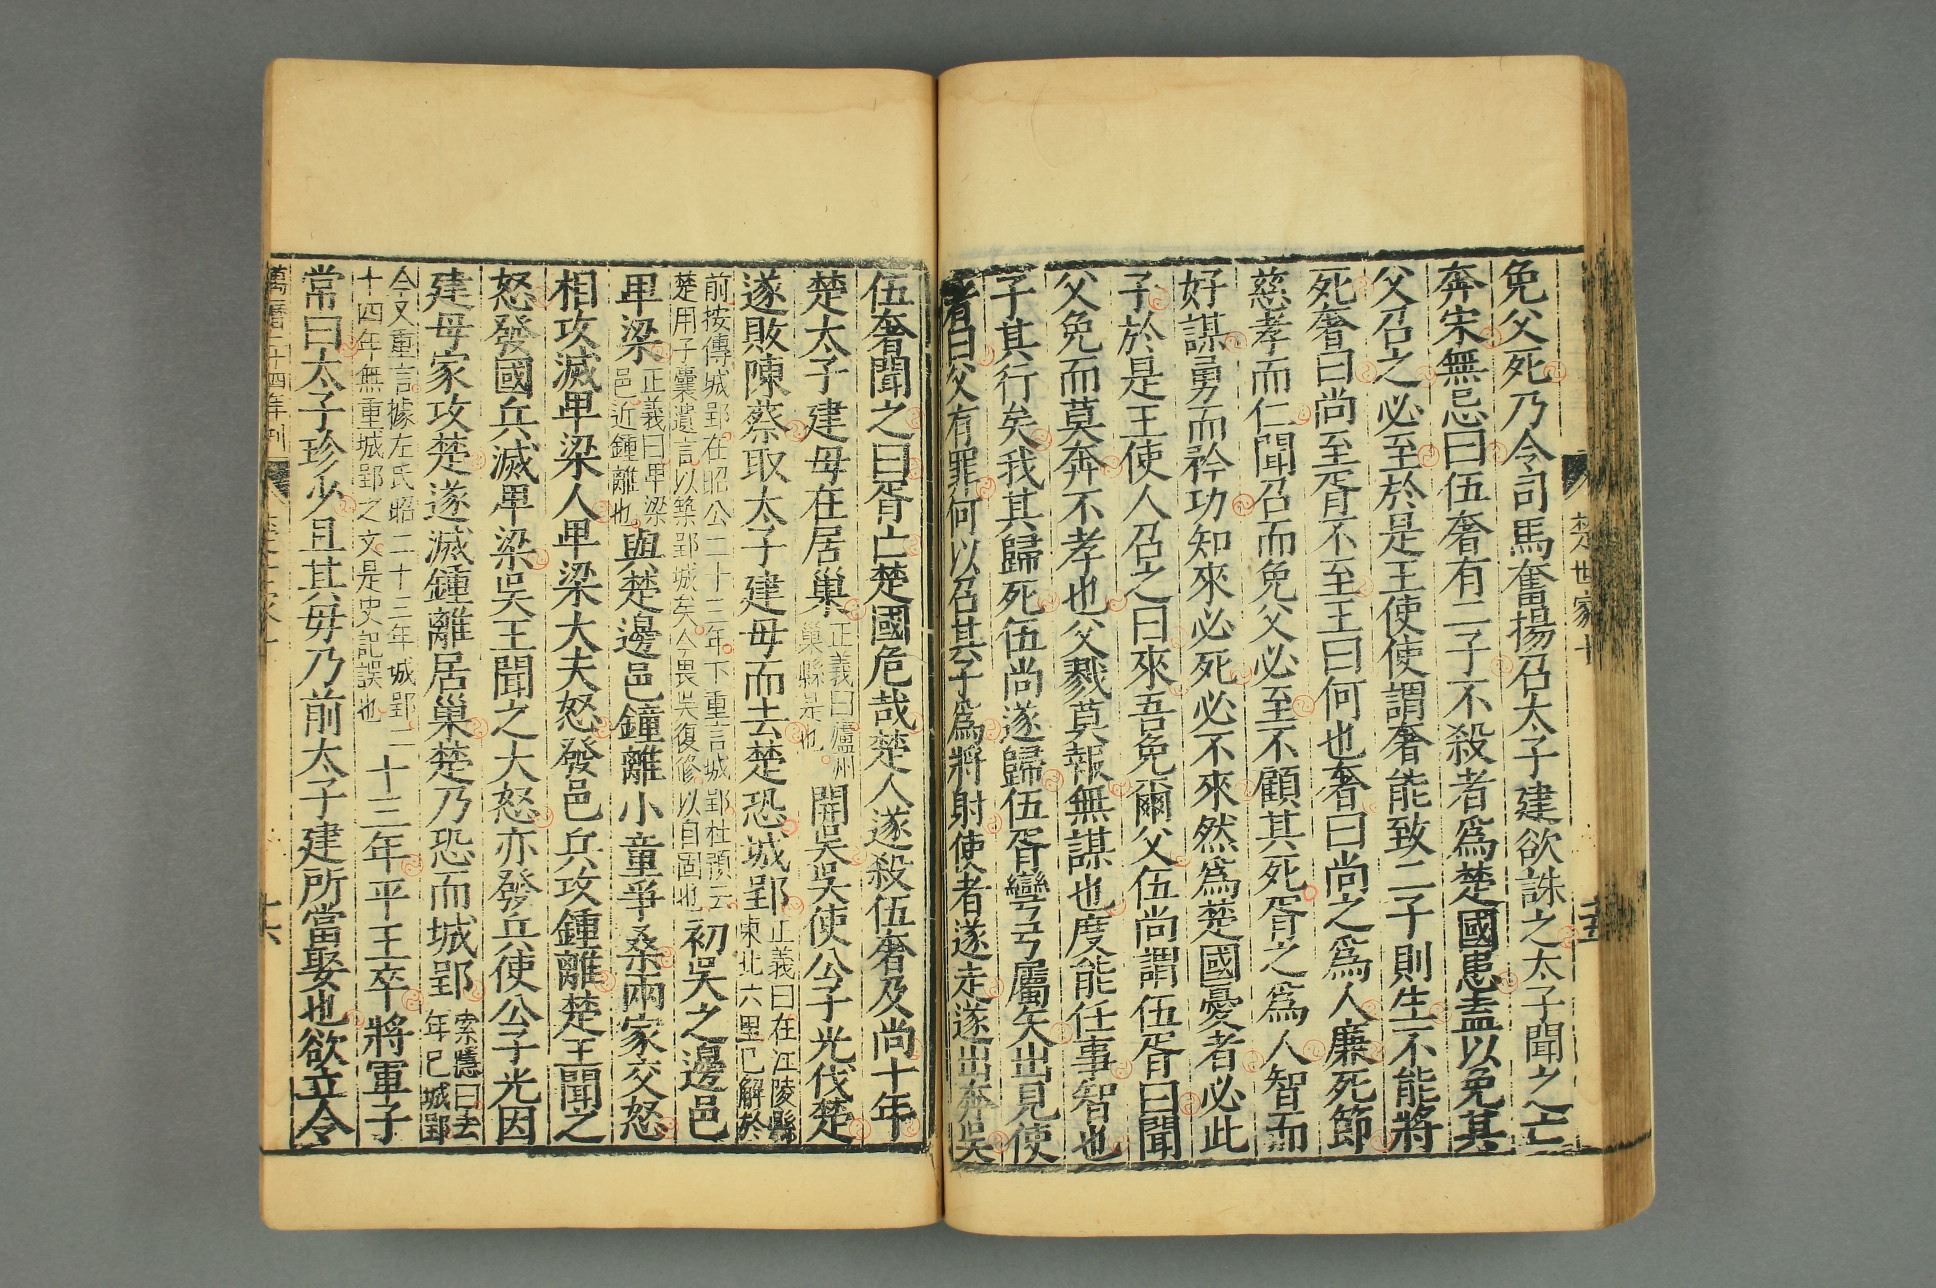 楚世家十
十五
免父死乃令司馬奮揚召太子建欲誅之太子聞之亡
奔宋無忌曰伍奢有二子不殺者爲楚國患盍以免其
父召之必至於是王使使謂奢能致二子則生不能將
死奢曰尚至胥不至王曰何也奢曰尚之爲人廉死節
慈孝而仁聞召而免父必至不顧其死胥之爲人智而
好謀勇而矜功知來必死必不來然爲楚國憂者必此
子於是王使人召之曰來吾免爾父伍尚謂伍胥曰聞
父免而莫奔不孝也父戮莫報無謀也度能任事智也
子其行矣我其歸死伍尚遂歸伍胥彎弓屬矢出見使
者曰父有罪何以召其子爲將射使者遂走遂出奔吳
伍奢聞之曰胥亡楚國危哉楚人遂殺伍奢及尚十年
楚太子建母在居巢正義曰廬州巢縣是也開吳吳使公子光伐楚
遂敗陳蔡取太子建母而去楚恐城郢正義曰在江陵縣東北六里已解於
前按傳城郢在昭公二十三年下重言城郢杜預云楚用子囊遺言以築郢城矣今畏吳復修以自固也初吳之邊邑
卑梁正義曰卑梁邑近鍾離也與楚邊邑鐘離小童爭桑兩家交怒
相攻滅卑梁人卑梁大夫怒發邑兵攻鍾離楚王聞之
怒發國兵滅卑梁吳王聞之大怒亦發兵使公子光因
建母家攻楚遂滅鍾離居巢楚乃恐而城郢索隱曰去年已城郢
今又重言據左氏昭二十三年城郢二十四年無重城郢之文是史記誤也十三年平王卒將軍子
常曰太子珍少且其母乃前太子建所當娶也欲立令
萬曆二十四年刊
十六